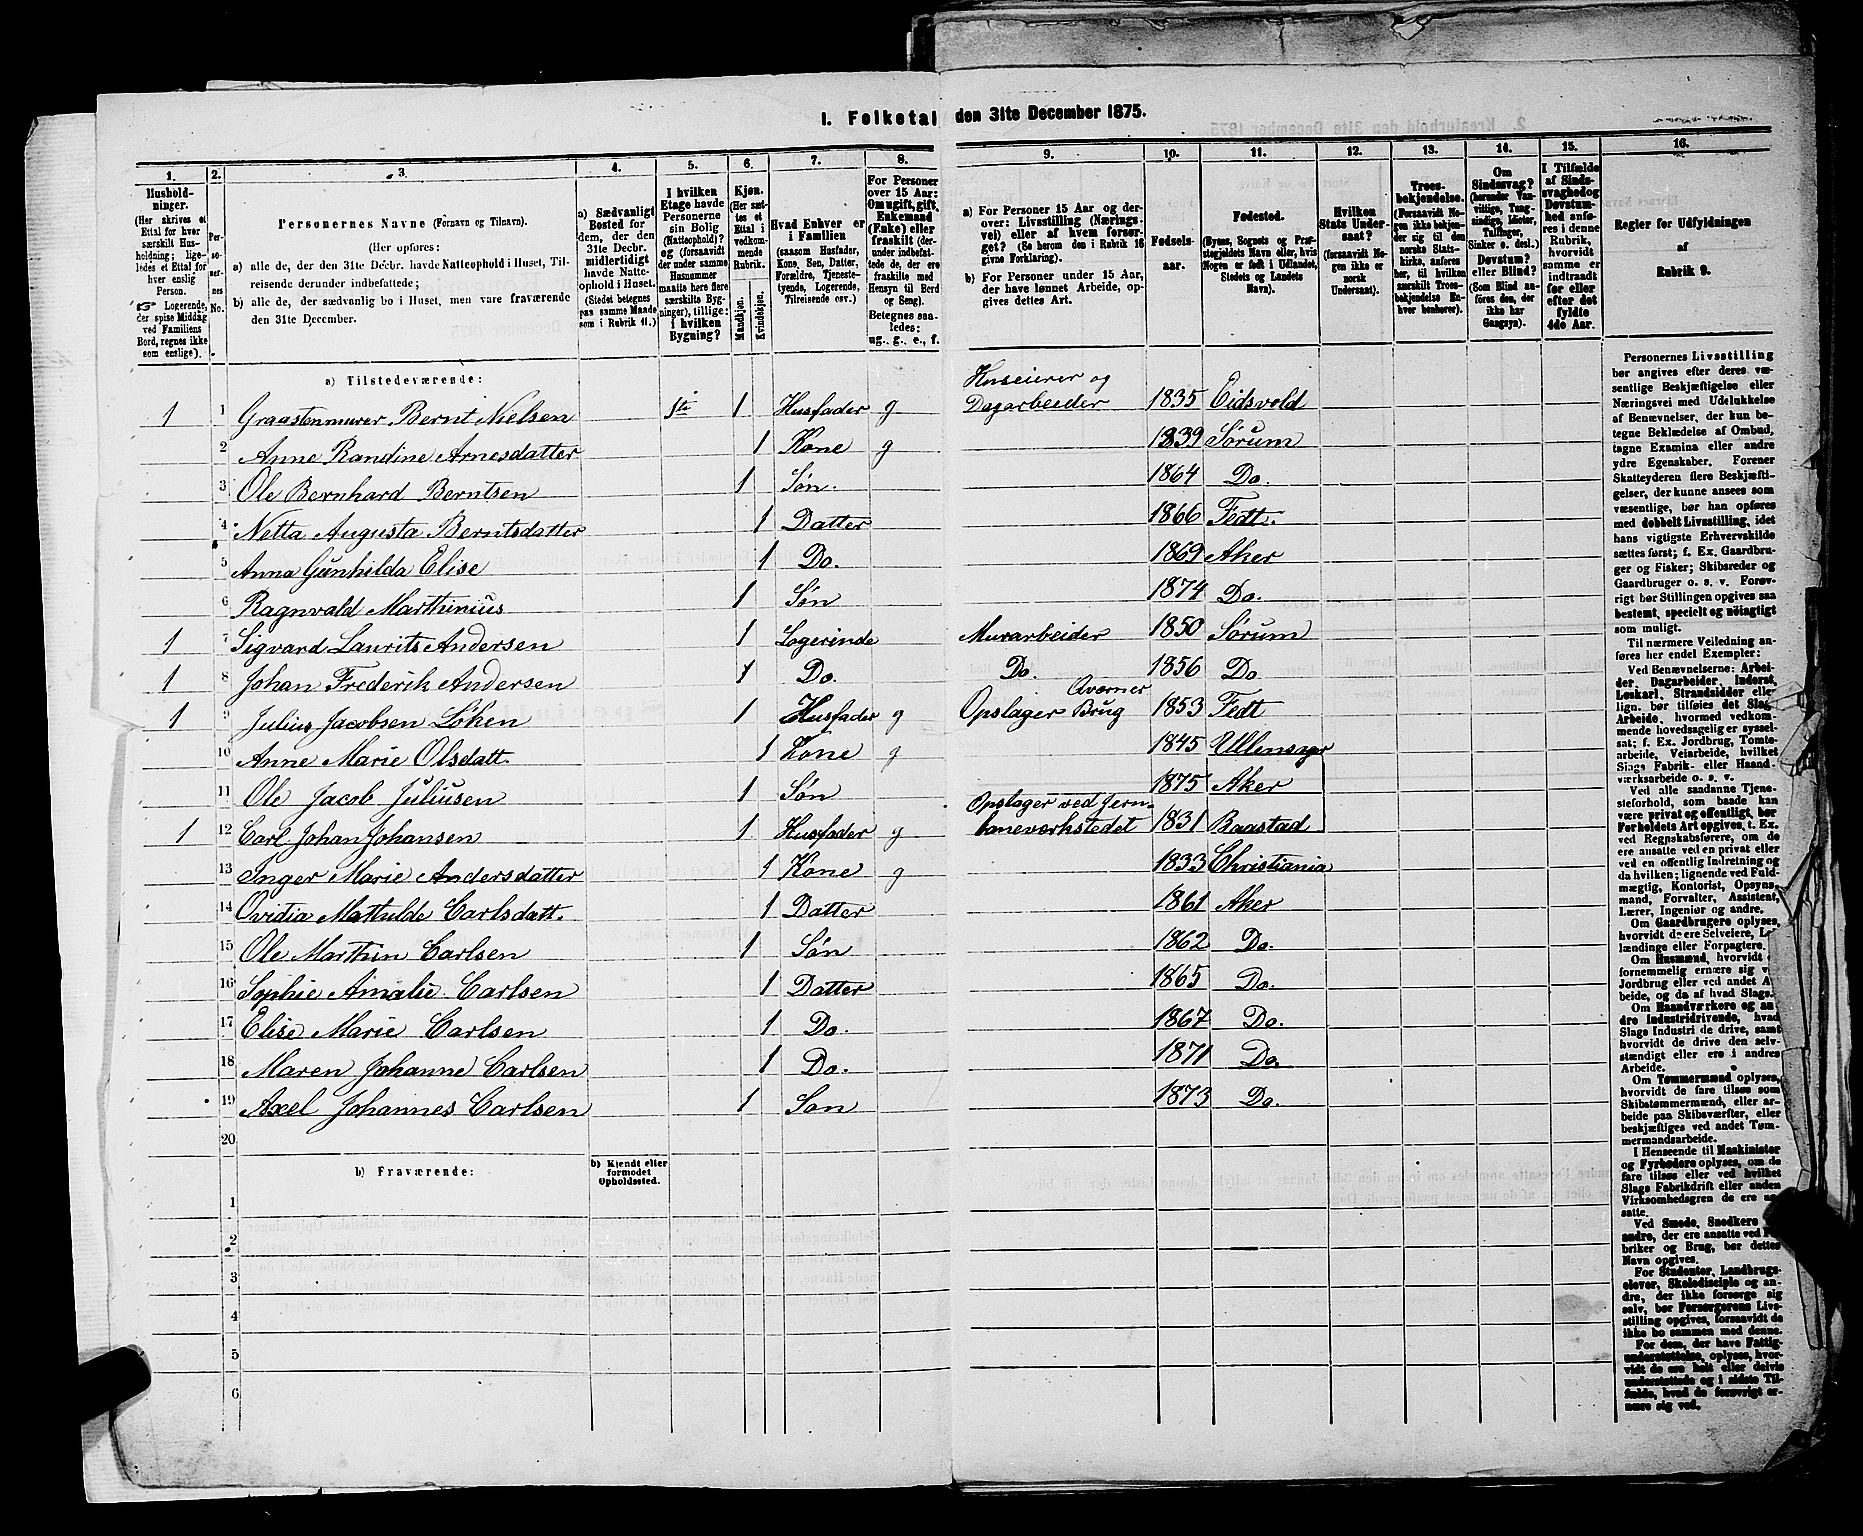 I. Folketal den 31te December 1875.
1. 2. 3. 4. 5. 6. 7. 8. 9. 10. 11. 12. 13. 14. 15. 16.
Husholdninger.
(Her skrives et Ettal for hver særskilt Husholdning; ligeledes et Ettal for hver enslig Person.
Logerende, der spise Middag ved Familiens Bord, regnes ikke som enslige).
Personernes No.
Personernes Navne (Fornavn og Tilnavn).
(Her opføres:
a) alle de, der den 31te Decbr. havde Natteophold i Huset, Tilreisende derunder indbefattede;
b) alle de, der sædvanlig bo i Huset, men vare fraværende den 31te December.
a) Sædvanligt Bosted for dem, der den 31te Decbr. midlertidigt havde Natteophold i Huset.
(Stedet betegnes paa samme Maade som i Rubrik 11.)
I hvilken Etage havde Personerne sin Bolig (Natteophold)? og (forsaavidt der under samme Husnummer maatte høre flere særskilte Bygninger), tillige: i hvilken Bygning?
Kjøn.
(Her sættes et Ettal i vedkommende Rubrik.
Mandkjøn.
Kvindekjøn.
Hvad Enhver er i Familien
(saasom Husfader, Kone, Søn, Datter, Forældre, Tjenestetyende, Logerende, Tilreisende osv.)
For Personer over 15 Aar: Om ugift, gift, Enkemand (Enke) eller fraskilt (derunder indbefattede de, der ere fraskilte med Hensyn til Bord og Seng)
Betegnes saaledes: ug., g., e., f.
a) For Personer 15 Aar og derover: Livsstilling (Næringsvei) eller af hvem forsørget? (Se herom den i Rubrik 16 givne Forklaring).
b) For Personer under 15 Aar, der have lønnet Arbeide, opgives dettes Art.
Fødselsaar.
Fødested.
(Byens, Sognets og Præstegjeldets Navn eller, hvis Nogen er født i Udlandet, Stedets og Landets Navn).
Hvilken Stats Undersaat?
(forsaavidt Nogen ikke er norsk Undersaat).
Troesbekjendelse.
(Forsaavidt Nogen ikke bekjender sig til den norske Statskirke, anføres her, til hvilken Troesbekjendelse Enhver henhører).
Om Sindssvag? (herunder Vanvittige, Tungsindige, Idioter, Tullinger, Sinker o. desl.) Døvstum? eller Blind? (Som Blind anføres den, der ikke har Gangsyn).
I Tilfælde af Sindssvaghed og Døvstumhed anføres i denne Rubrik, hvorvidt samme er indtraadt før eller efter det fyldte 4de Aar.
Regler for Udfyldningen af Rubrik 9.
a) Tilstedeværende:
1 1 Graastenmurer Bernt Nielsen 1ste 1 Husfader g Huseierer og Dagarbeider 1835 Eidsvold
2 Anne Randine Arnesdatter 1 Kone g 1839 Sørum
3 Ole Bernhard Berntsen 1 Søn. 1864 Do.
4 Netta Augusta Berntsdatter 1 Datter 1866 Fedt.
5 Anna Gunhilda Elise 1 Do. 1869 Aker
6 Ragnvald Marthinius 1 Søn 1874 Do.
1 7 Sigvard Laurits Andersen 1 Logerinde Murarbeider 1850 Sørum
1 8 Johan Frederik Andersen 1 Do. Do. 1856 Do.
1 9 Julius Jacobsen Løken 1 Husfader g Opslager Qværner Brug 1853 Fedt
10 Anne Marie Olsdatt. 1 Kone g 1845 Ullensager
11 Ole Jacob Juliusen 1 Søn 1875 Aker
1 12 Carl Johan Johansen 1 Husfader g Opslager ved Jernbaneværkstedet 1831 Baastad
13 Inger Marie Andersdatter 1 Kone g 1833 Christiania
14 Ovidia Mathilde Carlsdatt. 1 Datter 1861 Aker
15 Ole Marthin Carlsen 1 Søn 1862 Do.
16 Sophie Amalie Carlsen 1 Datter 1865 Do.
17 Elise Marie Carlsen 1 Do. 1867 Do.
18 Maren Johanne Carlsen 1 Do. 1871 Do.
19 Axel Johannes Carlsen 1 Søn 1873 Do.
20
b) Fraværende:
b) Kjendt eller formodet Opholdssted.
1
2
3
4
5
6
Personernes Livsstilling
bør angives efter deres væ-
sentlige Beskjæftigelse eller
Næringsvei med Udelukkelse
af Benævnelser, der kun be-
tegne Beklædelse af Ombud,
tagne Examina eller andre
ydre Egenskaber. Forener
Skatteyderen flere Beskjæfti-
gelser, der kunne ansees som
væsentlige, bør han opføres
med dobbelt Livsstilling, idet
hans vigtigste Erhvervskilde
sættes først; f. Ex. Gaardbru-
ger og Fisker; Skibsreder og
Gaardbruger o. s. v. Forøv-
rigt bør Stillingen opgives saa
bestemt, specielt og nøiagtigt
som muligt.
Til nærmere Veiledning an-
føres her endel Exempler:
Ved Benævnelserne: Arbei-
der, Dagarbeider, Inderst,
Løskarl, Strandsidder eller
lign. bør tilføies det Slags
Arbeide, hvormed vedkom-
mende hovedsagelig er syssel-
sat; f. Ex. Jordbrug, Tomte-
arbeide, Veiarbeide, hvilket
Slags Fabrik- eller Haand-
værksarbeide o. s. v.
Ved alle saadanne Tjene-
steforhold, som baade kan
være privat og offentligt, bør
Forholdets Art opgives, t. Ex.
ved Regnskabsførere, om de
ere ansatte ved en privat eller
ved en offentlig Indretning og
da hvilken; lignende ved Fuld-
mægtig, Kontorist, Opsyns-
mand, Forvalter, Assistent,
Lærer, Ingeniør og andre.
Om Gaardbrugere oplyses,
hvorvidt de ere Selveiere,
lændinge eller Forpagtere.
Om Husmænd, hvorvidt
fornemmelig ernære sig
Jordbrug eller ved andet
beide, og da af hvad Slags.
Om Haandværkere og an-
dre Industridrivende, hvad
Slags Industri de drive, samt
hvorvidt de drive den selv-
stændigt eller ere i andres
Arbeide.
Om Tømmermænd oplyses,
hvorvidt de fare tilsøs som
Skibstømmermænd, eller ar-
beide paa Skibsværfter, eller
beskjæftiges ved andet Tøm-
mermandsarbeide.
I Henseende til Maskinister
og Fyrbødere oplyses, om de
fare tilsøs eller ved hvilket
Slags Fabrikdrift eller anden
Virksomhedsgren de ere an-
satte.
Ved Smede, Snedkere
andre, der ere ansatte ved Fa-
briker og Brug, bør dettes
Navn opgives.
For Studenter, Landbrugs-
elever, Skoledisciple og an-
dre, der ikke forsørge sig
selv, bør Forsørgerens Livs-
stilling opgives, forsaavidt de
ikke bo sammen med denne.
For dem, der have Fattig-
understøttelse, oplyses, hvor-
vidt de ere helt eller delvis
understøttede og i sidste Til-
fælde, hvad de forøvrigt er-
nære sig ved.